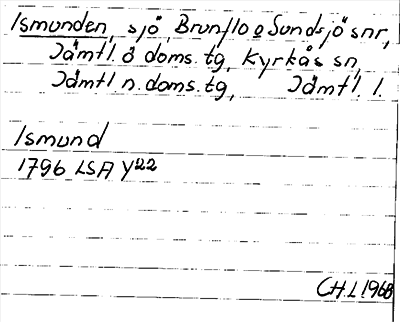 Ismunden, sjö, Brunflo o Sundsjö snr,
Jämtl. ö doms.tg, Kyrkås sn,
Jämtl n. doms.tg, Jämtl. l.
Ismund
1796 LSA Y22
CH.L 1968